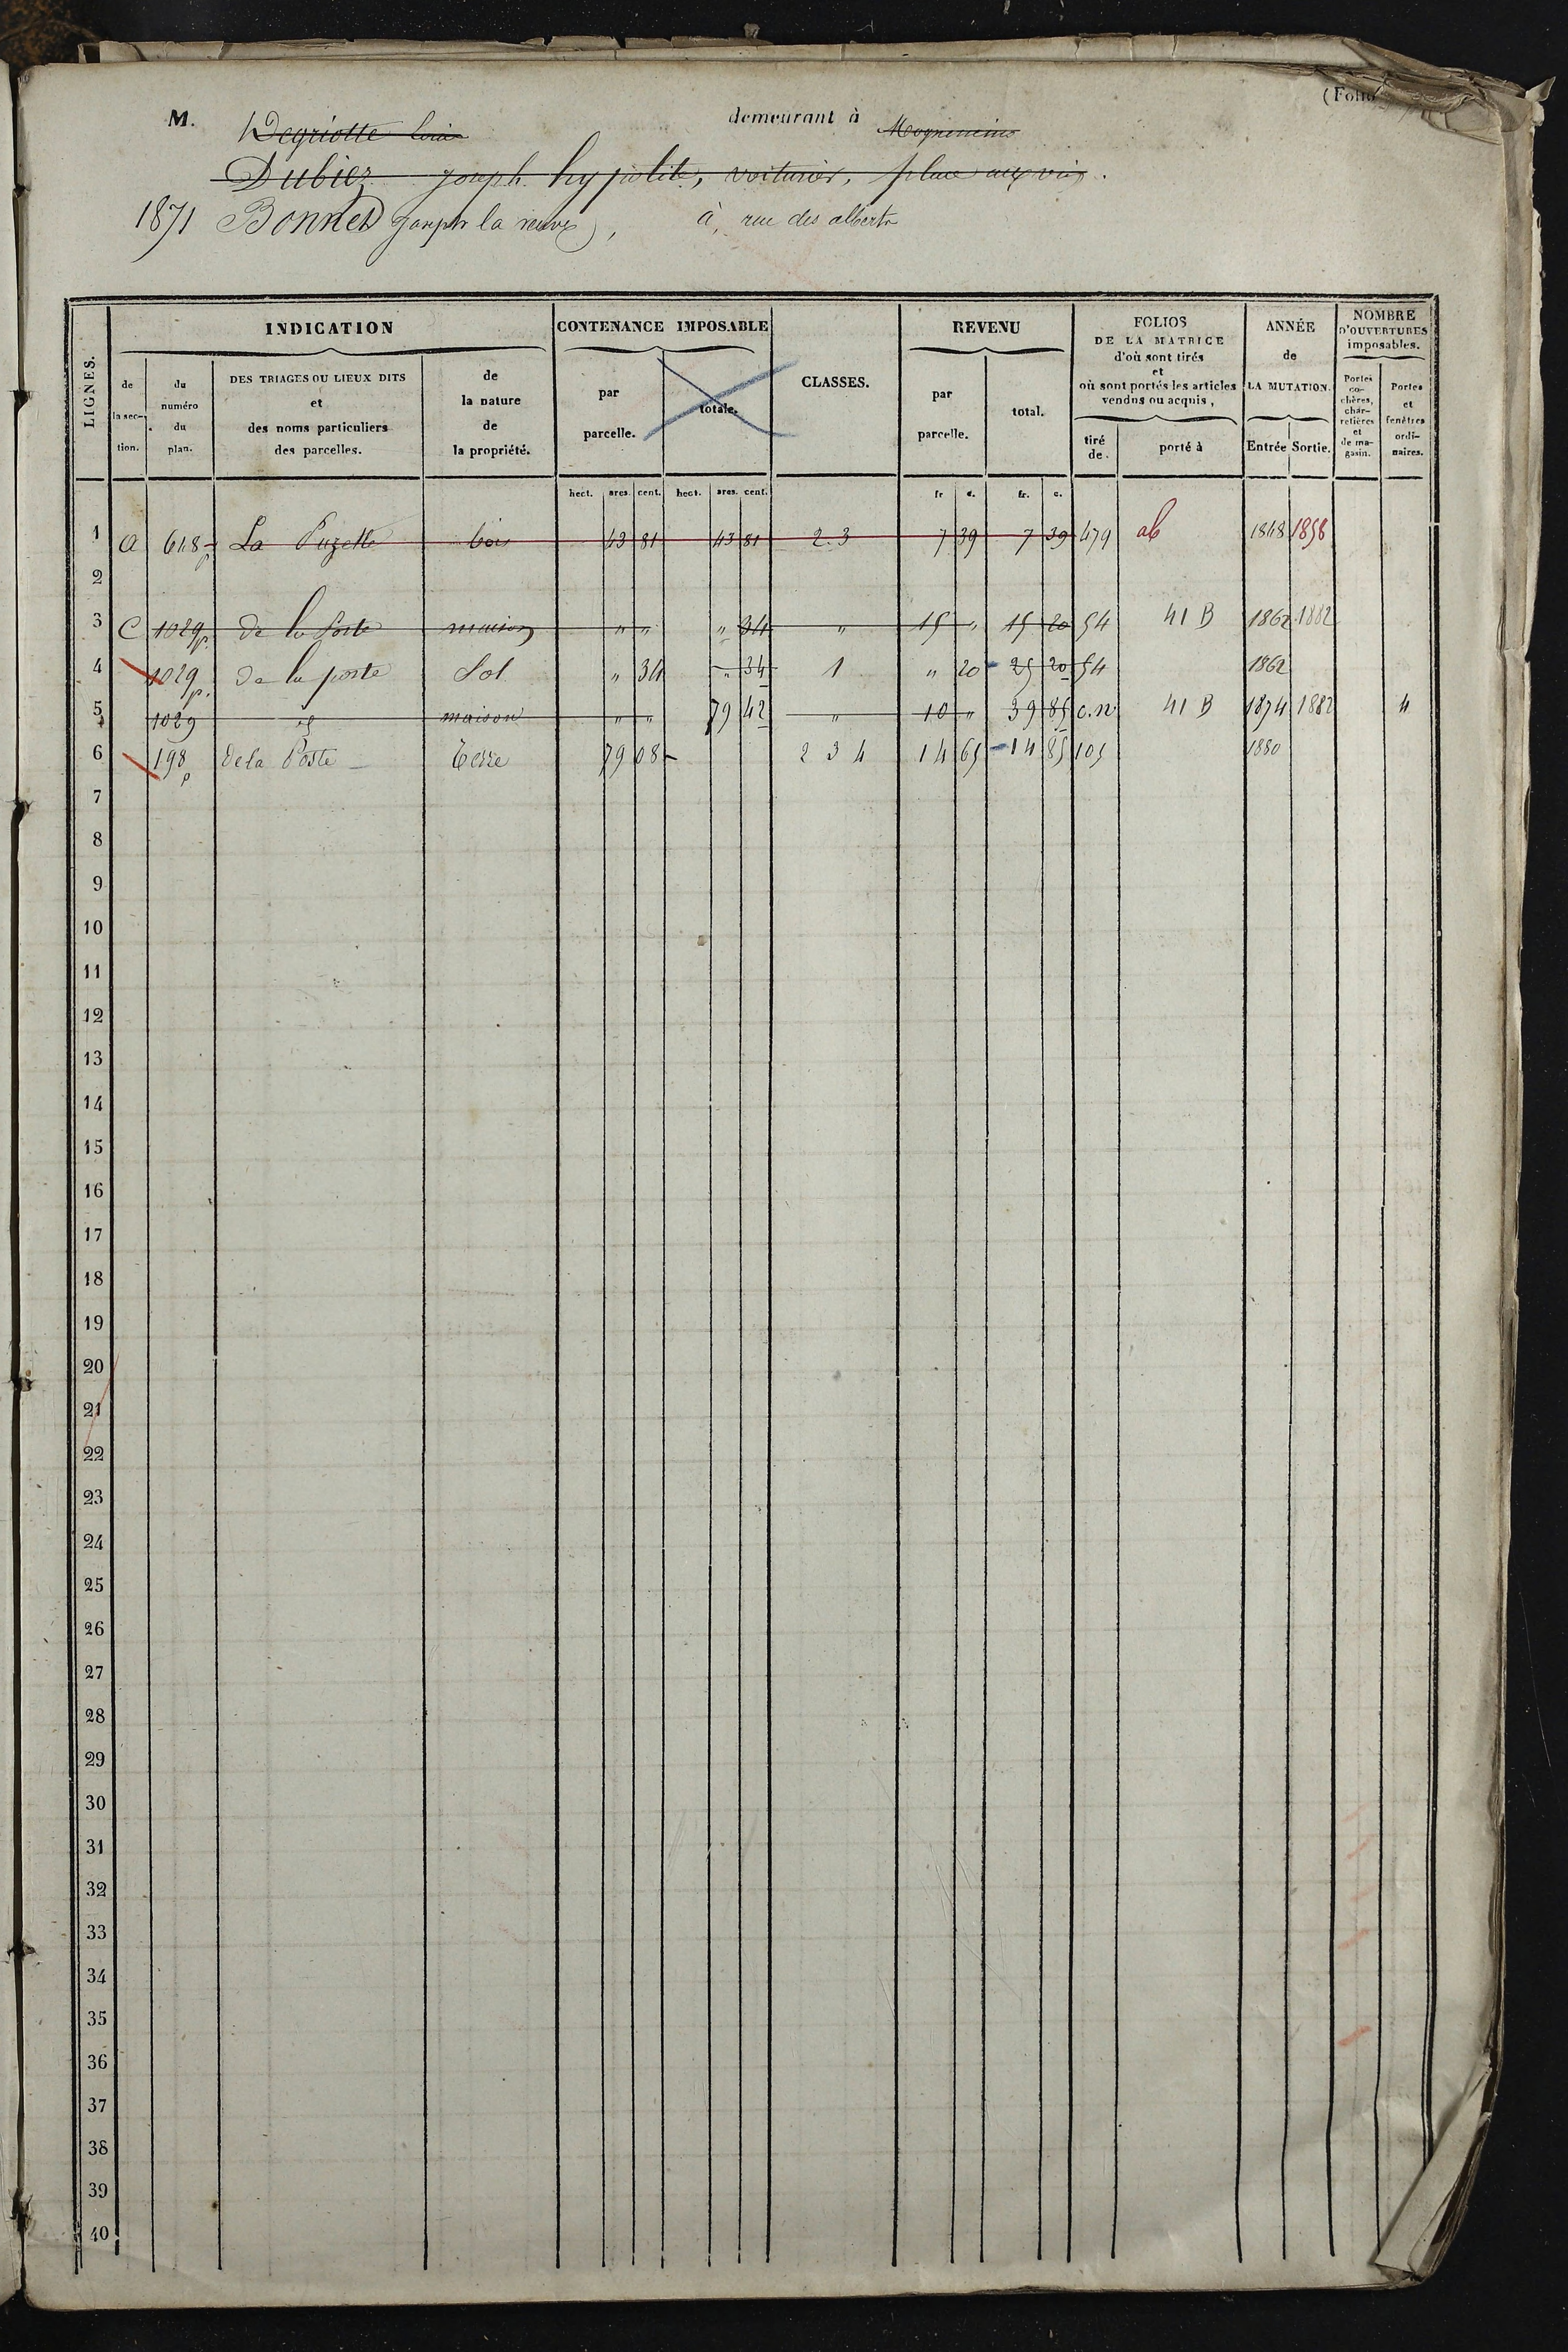 (Folio
M. Degriotte Louis demeurant à Mogneneins
Dubiez joseph hypolite, voiturier, place aux vins.
1871 Bonnet joseph la veuve, à, rue des alberts
LIGNES.
INDICATION
de la section.
du numéro du plan.
DES TRIAGES OU LIEUX DITS et des noms particuliers des parcelles.
de la nature de la propriété.
CONTENANCE IMPOSABLE
par parcelle.
totale.
CLASSES.
REVENU
par parcelle.
total.
FOLIOS DE LA MATRICE d'où sont tirés et où sont portés les articles vendus ou acquis,
tiré de.
porté à
ANNÉE de LA MUTATION.
Entrée Sortie.
NOMBRE D'OUVERTURES imposables.
Portes cochères, charretières et de magasin.
Portes et fenêtres ordinaires.
hect. ares. cent. hect. ares. cent. fr c. fr. c.
1 a 618 p La Puzette bois 43 81 43 81 2.3 7 39 7 39 479 ab 1848 1858
2
3 C 1029 p. de la Poste maison " " " 34 " 15 " 15 20 54 41 B 1862 1882
4 1029 p. de la poste Sol " 34 " 34 1 " 20 25 20 54 1862
5 1029 maison " " 79 42 " 10 " 39 85 c.n 41 B 1874 1882 4
6 198 p de la Poste Terre 79 08 2 3 4 14 65 14 85 105 1880
7
8
9
10
11
12
13
14
15
16
17
18
19
20
21
22
23
24
25
26
27
28
29
30
31
32
33
34
35
36
37
38
39
40